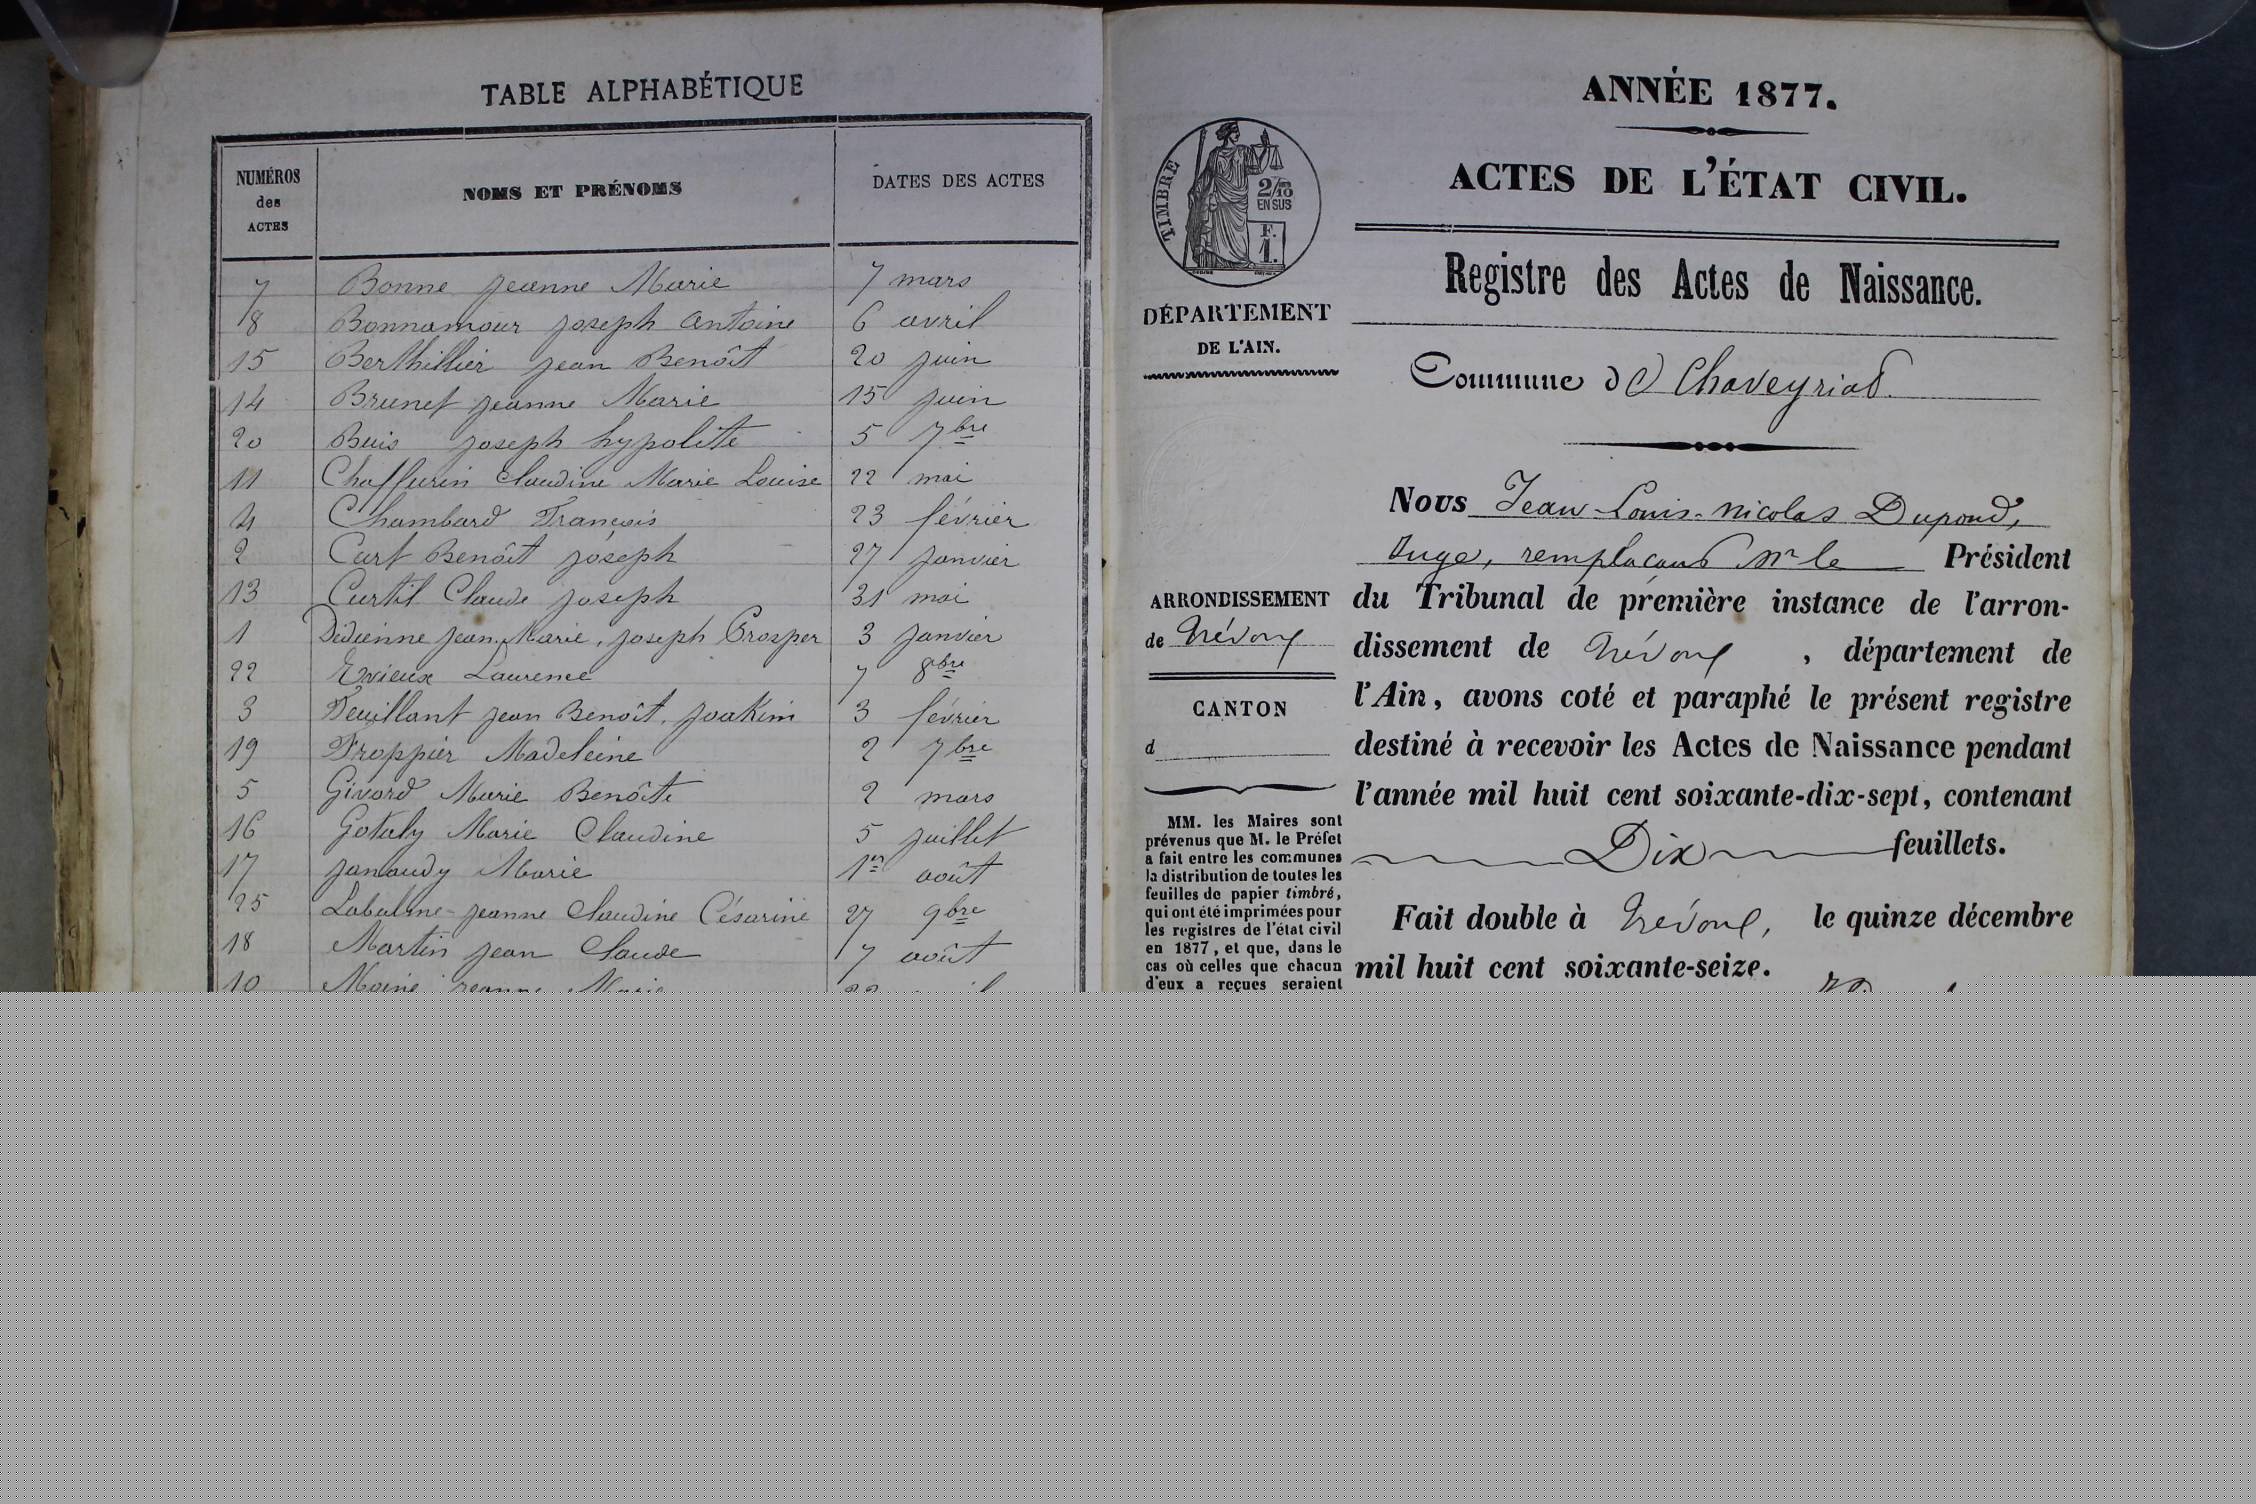 TABLE ALPHABÉTIQUE
NUMÉROS des ACTES NOMS ET PRÉNOMS DATES DES ACTES
7 Bonne Jeanne Marie 7 mars
8 Bonnamour Joseph Antoine 6 avril
15 Berthillier Jean Benoît 20 juin
14 Brunet Jeanne Marie 15 juin
20 Buis Joseph hypolite 5 7bre
11 Chaffurin Claudine Marie Louise 22 mai
4 Chambard François 23 février
2 Curt Benoît Joseph 27 janvier
13 Curtil Claude Joseph 31 mai
1 Dédienne Jean Marie, Joseph Prosper 3 janvier
22 Evieux Laurence 7 8bre
3 Feuillant Jean Benoît, Joakim 3 février
19 Froppier Madeleine 2 7bre
5 Givord Marie Benoîte 2 mars
16 Gotaly Marie Claudine 5 juillet
17 Janaudy Marie 1er août
25 Labalme Jeanne Claudine Césarine 27 9bre
18 Martin Jean Claude 7 août
10 Moine Jeanne Marie 22
ANNÉE 1877.
ACTES DE L'ÉTAT CIVIL.
Registre des Actes de Naissance.
Commune de Chaveyriat
Nous Jean-Louis-Nicolas Dupond,
Juge, remplaçant Mr le Président
du Tribunal de première instance de l'arron-
dissement de Trévoux, département de
l'Ain, avons coté et paraphé le présent registre
destiné à recevoir les Actes de Naissance pendant
l'année mil huit cent soixante-dix-sept, contenant
Dix feuillets.
Fait double à Trévoux, le quinze décembre
mil huit cent soixante-seize.
TIMBRE
2/10
EN SUS
F.
1.
DÉPARTEMENT
DE L'AIN.
ARRONDISSEMENT
de Trévoux
CANTON
d
MM. les Maires sont
prévenus que M. le Préfet
a fait entre les communes
la distribution de toutes les
feuilles de papier timbré,
qui ont été imprimées pour
les registres de l'état civil
en 1877, et que, dans le
cas où celles que chacun
d'eux a reçues seraient